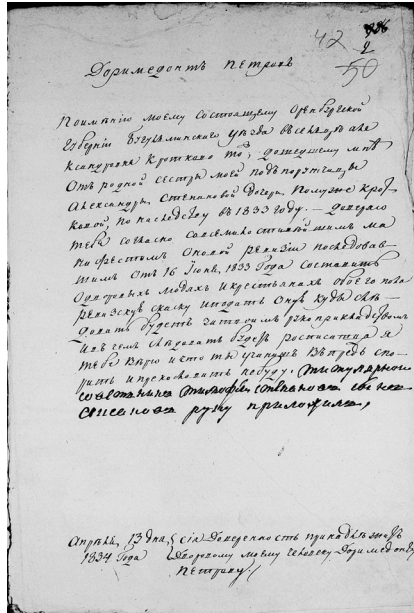 42
50
Доримедонтъ Петровъ
По имѣнію моему Состоящему Оренбургской
Губерніи Бугульминскаго уѣзда въ сельцѣ Але
ксандровкѣ Кроткаго то, дошедшему мнѣ
отъ родной сестры моей подъ порутчицы
Александры Степановой Дочери, по мужѣ Крот
ковой, по наслѣдству въ 1833 году. — Довѣряю
тебѣ согласно Всемилостивѣйшимъ ма
нифестомъ о новой ревизіи послѣдовав
шимъ отъ 16 Іюня, 1833 Года составить
о дворовыхъ людяхъ и крестьянахъ обоего пола
ревизскую скаску и подать оную куда слѣ
довать будетъ за твоимъ рукоприкладствомъ
и въ чемъ слѣдовать будетъ росписатца я
тебѣ вѣрю и что ты учинишь впредь спо
рить и прекословить небуду. титулярной
советникъ тимофей степановъ сынъ
аксаковъ руку приложилъ,
Апрѣля, 13 дня
1834 Года
сія Довѣренность принадлежитъ
Дворовому моему человѣку Доримедонту
Петрову.